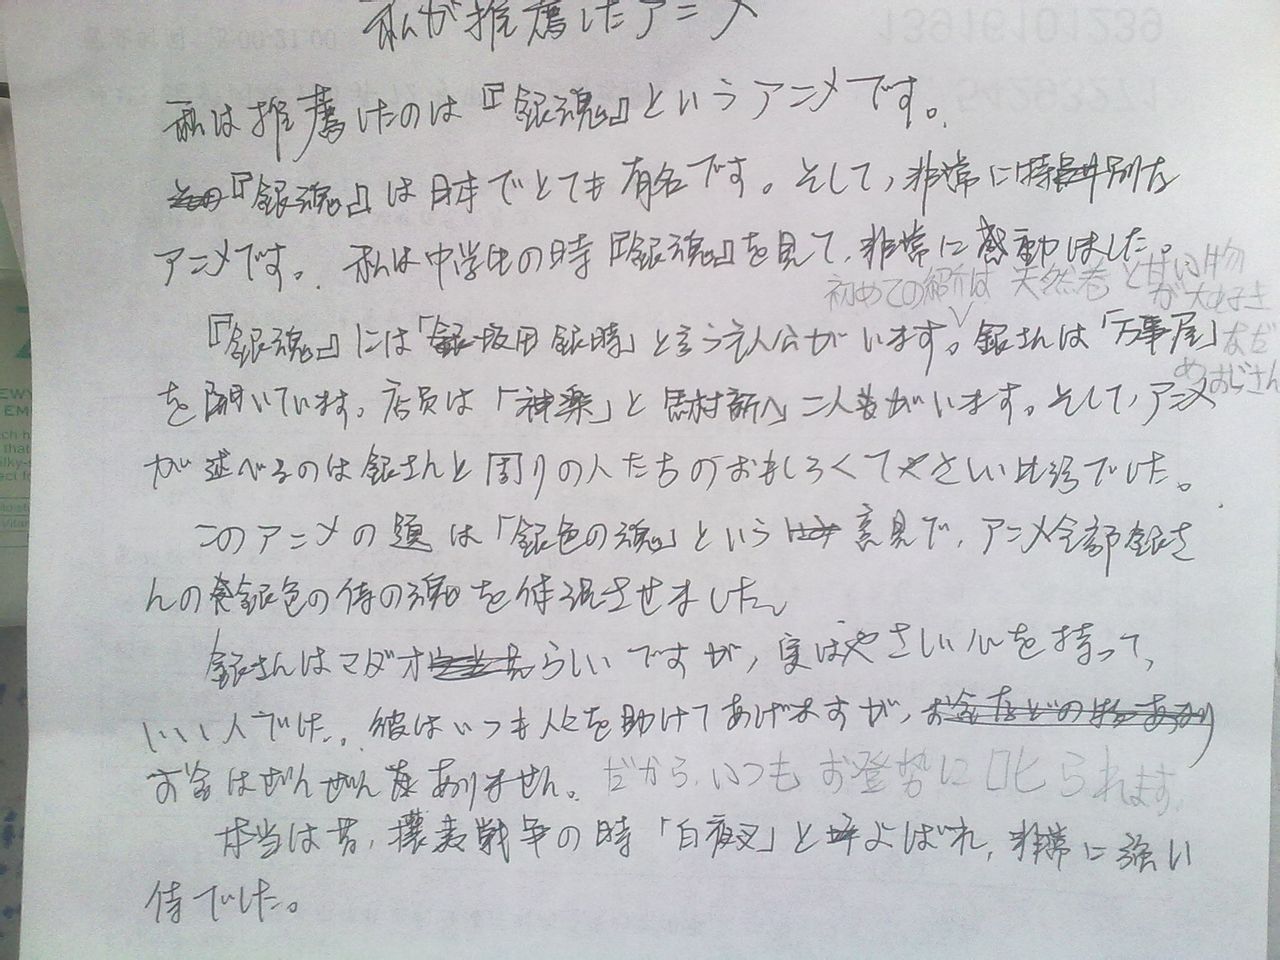 私が推薦したアニメ
私は推薦したのは『銀魂』というアニメです。
『銀魂』は日本でとても有名です。そして、非常に特別な
アニメです。私は中学生の時『銀魂』を見て、非常に感動しました。
初めての紹介は天然巻と甘い物
が大好き
『銀魂』には「坂田銀時」と言う主人公がいます。銀さんは「万事屋」
なだ
めおじさん
を開いています。店員は「神楽」と志村新八二人がいます。そして、アニメ
が述べるのは銀さんと周りの人たちのおもしろくてやさしい でした。
このアニメの題は「銀色の魂」という意見で、アニメ全部銀さ
んの銀色の侍の魂を体現させました。
銀さんはマダオらしいですが、実はやさしい心を持って、
いい人でした。彼はいつも人々を助けてあげますが、
お金はぜんぜんありません。だから、いつもお登勢に叱られます。
本当は昔、攘夷戦争の時「白夜叉」とよばれ、非常に強い
侍でした。